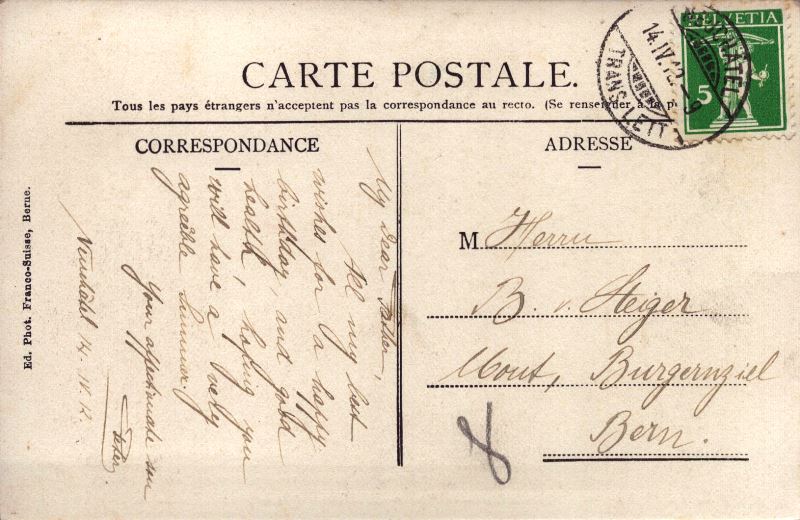 CARTE POSTALE.
Tous les pays étrangers n'acceptent pas la correspondance au recto. (Se renseigner à la p
HELVETIA
5
NEUCHATEL
14.IV.12.-9
TRANS. LETT.
CORRESPONDANCE
My dear Father,
All my best
wishes for a happy
birthday, and good
health, hoping you
will have a very
agreible Summer.
Your affectionate son
Peter.
Neuchâtel 14. IV. 12.
ADRESSE
M Herrn
B. v. Steiger
Mont, Burgernziel
Bern.
8
Ed. Phot. Franco-Suisse, Berne.